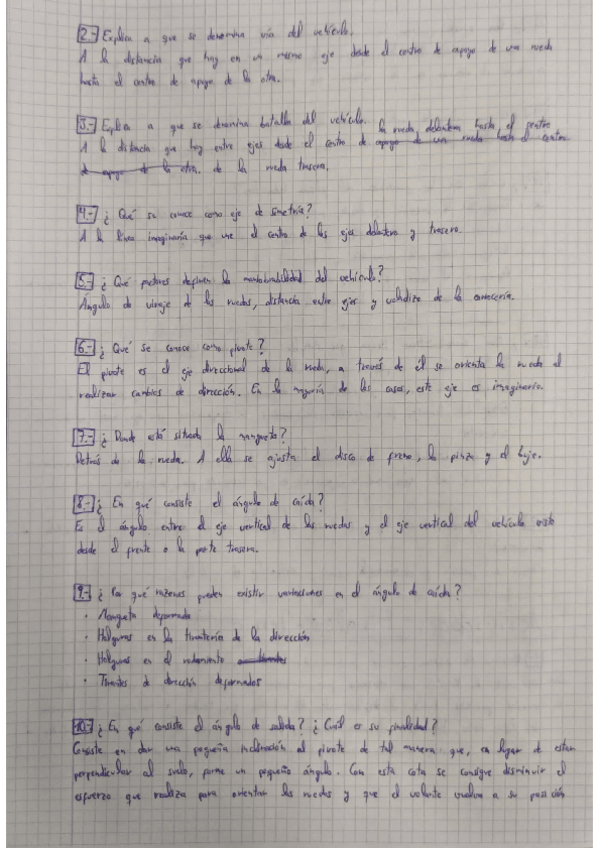 2.- Explica a que se denomina vía del vehículo.
A la distancia que hay en un mismo eje desde el centro de apoyo de una rueda
hasta el centro de apoyo de la otra.
3.- Explica a que se denomina batalla del vehículo.
A la distancia que hay entre ejes desde el centro de la rueda delantera hasta el centro
de la rueda trasera.
4.- ¿Qué se conoce como eje de simetría?
A la línea imaginaria que une el centro de los ejes delantero y trasero.
5.- ¿Qué factores definen la maniobrabilidad del vehículo?
Ángulo de viraje de las ruedas, distancia entre ejes y voladizo de la carrocería.
6.- ¿Qué se conoce como pivote?
El pivote es el eje direccional de la rueda, a través de él se orienta la rueda al
realizar cambios de dirección. En la mayoría de los casos, este eje es imaginario.
7.- ¿Donde está situada la mangueta?
Detrás de la rueda. A ella se ajusta el disco de freno, la pinza y el buje.
8.- ¿En qué consiste el ángulo de caída?
Es el ángulo entre el eje vertical de las ruedas y el eje vertical del vehículo visto
desde el frente o la parte trasera.
9.- ¿Por qué razones pueden existir variaciones en el ángulo de caída?
· Mangueta deformada
· Holguras en la timonería de la dirección
· Holguras en el rodamiento
· Tirantes de dirección deformados
10.- ¿En qué consiste el ángulo de salida? ¿Cuál es su finalidad?
Consiste en dar una pequeña inclinación al pivote de tal manera que, en lugar de estar
perpendicular al suelo, forme un pequeño ángulo. Con esta cota se consigue disminuir el
esfuerzo que realiza para orientar las ruedas y que el volante vuelva a su posición